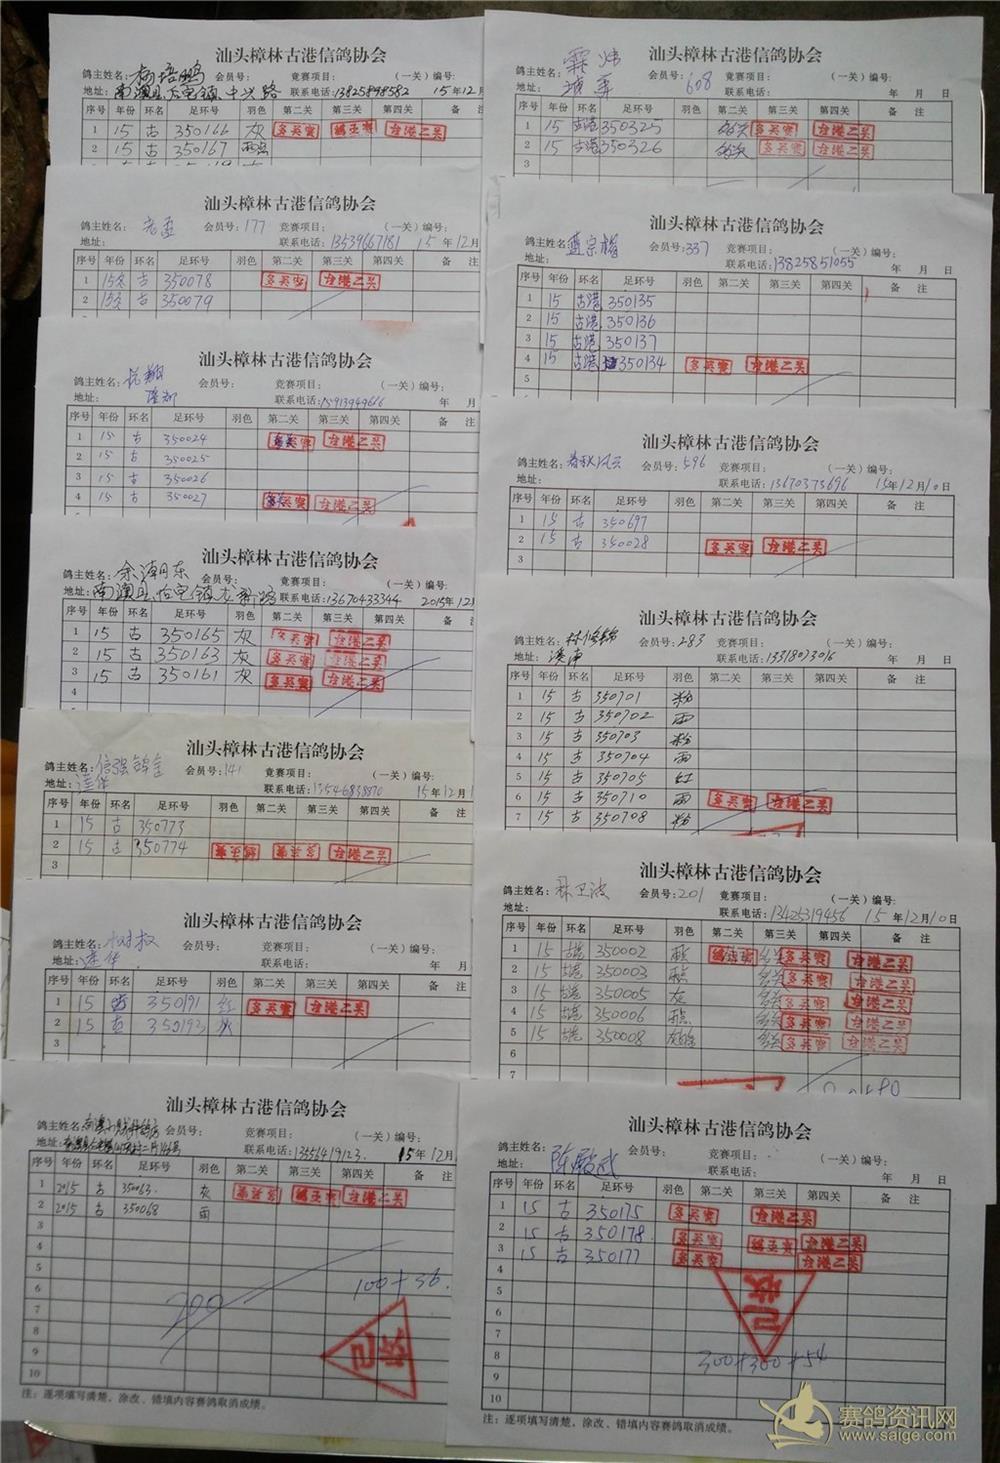 汕头樟林古港信鸽协会
鸽主姓名：杨培鹏 会员号： 竞赛项目： （一关）编号：
地址：南澳县后宅镇中兴路 联系电话：13825898582 15年12月
序号 年份 环名 足环号 羽色 第二关 第三关 第四关 备 注
1 15 古 350166 灰 多关赛 鸽王赛 古港二关
2 15 古 350167 雨点
汕头樟林古港信鸽协会
鸽主姓名： 会员号：177 竞赛项目： （一关）编号：
地址： 联系电话：13539667181 15年12月
序号 年份 环名 足环号 羽色 第二关 第三关 第四关 备 注
1 15 古 350078 多关赛 古港二关
2 15 古 350079
汕头樟林古港信鸽协会
鸽主姓名： 会员号： 竞赛项目： （一关）编号：
地址： 联系电话：15913949616 年 月
序号 年份 环名 足环号 羽色 第二关 第三关 第四关 备 注
1 15 古 350024 多关赛 古港二关
2 15 古 350025
3 15 古 350026
4 15 古 350027 多关赛 古港二关
汕头樟林古港信鸽协会
鸽主姓名：余潮东 会员号： 竞赛项目： （一关）编号：
地址：南澳县后宅镇龙新路 联系电话：13670433344 2015年12月
序号 年份 环名 足环号 羽色 第二关 第三关 第四关 备 注
1 15 古 350165 灰 多关赛 古港二关
2 15 古 350163 灰 多关赛 古港二关
3 15 古 350161 灰 多关赛 古港二关
4
汕头樟林古港信鸽协会
鸽主姓名：信强鸽舍 会员号：141 竞赛项目： （一关）编号：
地址：莲华 联系电话：13546838870 15年12月
序号 年份 环名 足环号 羽色 第二关 第三关 第四关 备 注
1 15 古 350773
2 15 古 350774 鸽王赛 多关赛 古港二关
3
汕头樟林古港信鸽协会
鸽主姓名：树权 会员号： 竞赛项目： （一关）编号：
地址：莲华 联系电话： 年 月
序号 年份 环名 足环号 羽色 第二关 第三关 第四关 备 注
1 15 古 350191 红 多关赛 古港二关
2 15 古 350193 灰
3
汕头樟林古港信鸽协会
鸽主姓名： 会员号： 竞赛项目： （一关）编号：
地址： 联系电话：1356419123. 15年12月
序号 年份 环名 足环号 羽色 第二关 第三关 第四关 备 注
1 2015 古 350063. 灰 鸽王赛 古港二关
2 2015 古 350068 雨
3
4
5
6
7
8
9
10
200 100+36.
已收
注：逐项填写清楚，涂改、错填内容赛鸽取消成绩。
汕头樟林古港信鸽协会
鸽主姓名：霖炜 会员号：608 竞赛项目： （一关）编号：
地址： 联系电话： 年 月 日
序号 年份 环名 足环号 羽色 第二关 第三关 第四关 备 注
1 15 古港 350325 多关赛 古港二关
2 15 古港 350326 多关赛 古港二关
3
汕头樟林古港信鸽协会
鸽主姓名：蓝宗楠 会员号：337 竞赛项目： （一关）编号：
地址： 联系电话：13825851055 年 月 日
序号 年份 环名 足环号 羽色 第二关 第三关 第四关 备 注
1 15 古港 350135
2 15 古港 350136
3 15 古港 350137
4 15 古港 350134 多关赛 古港二关
5
汕头樟林古港信鸽协会
鸽主姓名：春秋风云 会员号：596 竞赛项目： （一关）编号：
地址： 联系电话：13670373696 15年12月10日
序号 年份 环名 足环号 羽色 第二关 第三关 第四关 备 注
1 15 古 350697
2 15 古 350028 多关赛 古港二关
3
汕头樟林古港信鸽协会
鸽主姓名： 会员号：283 竞赛项目： （一关）编号：
地址：溪南 联系电话：13318073016 年 月 日
序号 年份 环名 足环号 羽色 第二关 第三关 第四关 备 注
1 15 古 350701 粉
2 15 古 350702 雨
3 15 古 350703 粉
4 15 古 350704 雨
5 15 古 350705 红
6 15 古 350710 雨 多关赛 古港二关
7 15 古 350708 粉
汕头樟林古港信鸽协会
鸽主姓名：林卫波 会员号：201 竞赛项目： （一关）编号：
地址： 联系电话：13425319456 15年12月10日
序号 年份 环名 足环号 羽色 第二关 第三关 第四关 备 注
1 15 古港 350002 鸽王赛 多关赛 古港二关
2 15 古港 350003 多关赛 古港二关
3 15 古港 350005 灰 多关赛 古港二关
4 15 古港 350006 多关赛 古港二关
5 15 古港 350008 多关赛 古港二关
6
7
汕头樟林古港信鸽协会
鸽主姓名： 会员号： 竞赛项目： （一关）编号：
地址： 联系电话： 年 月 日
序号 年份 环名 足环号 羽色 第二关 第三关 第四关 备 注
1 15 古 350175 多关赛 古港二关
2 15 古 350178. 多关赛 鸽王赛 古港二关
3 15 古 350177 多关赛 古港二关
4
5
6
7
8
9
10
已收
300+300+54
注：逐项填写清楚，涂改、错填内容赛鸽取消成绩。
赛鸽资讯网
www.saige.com